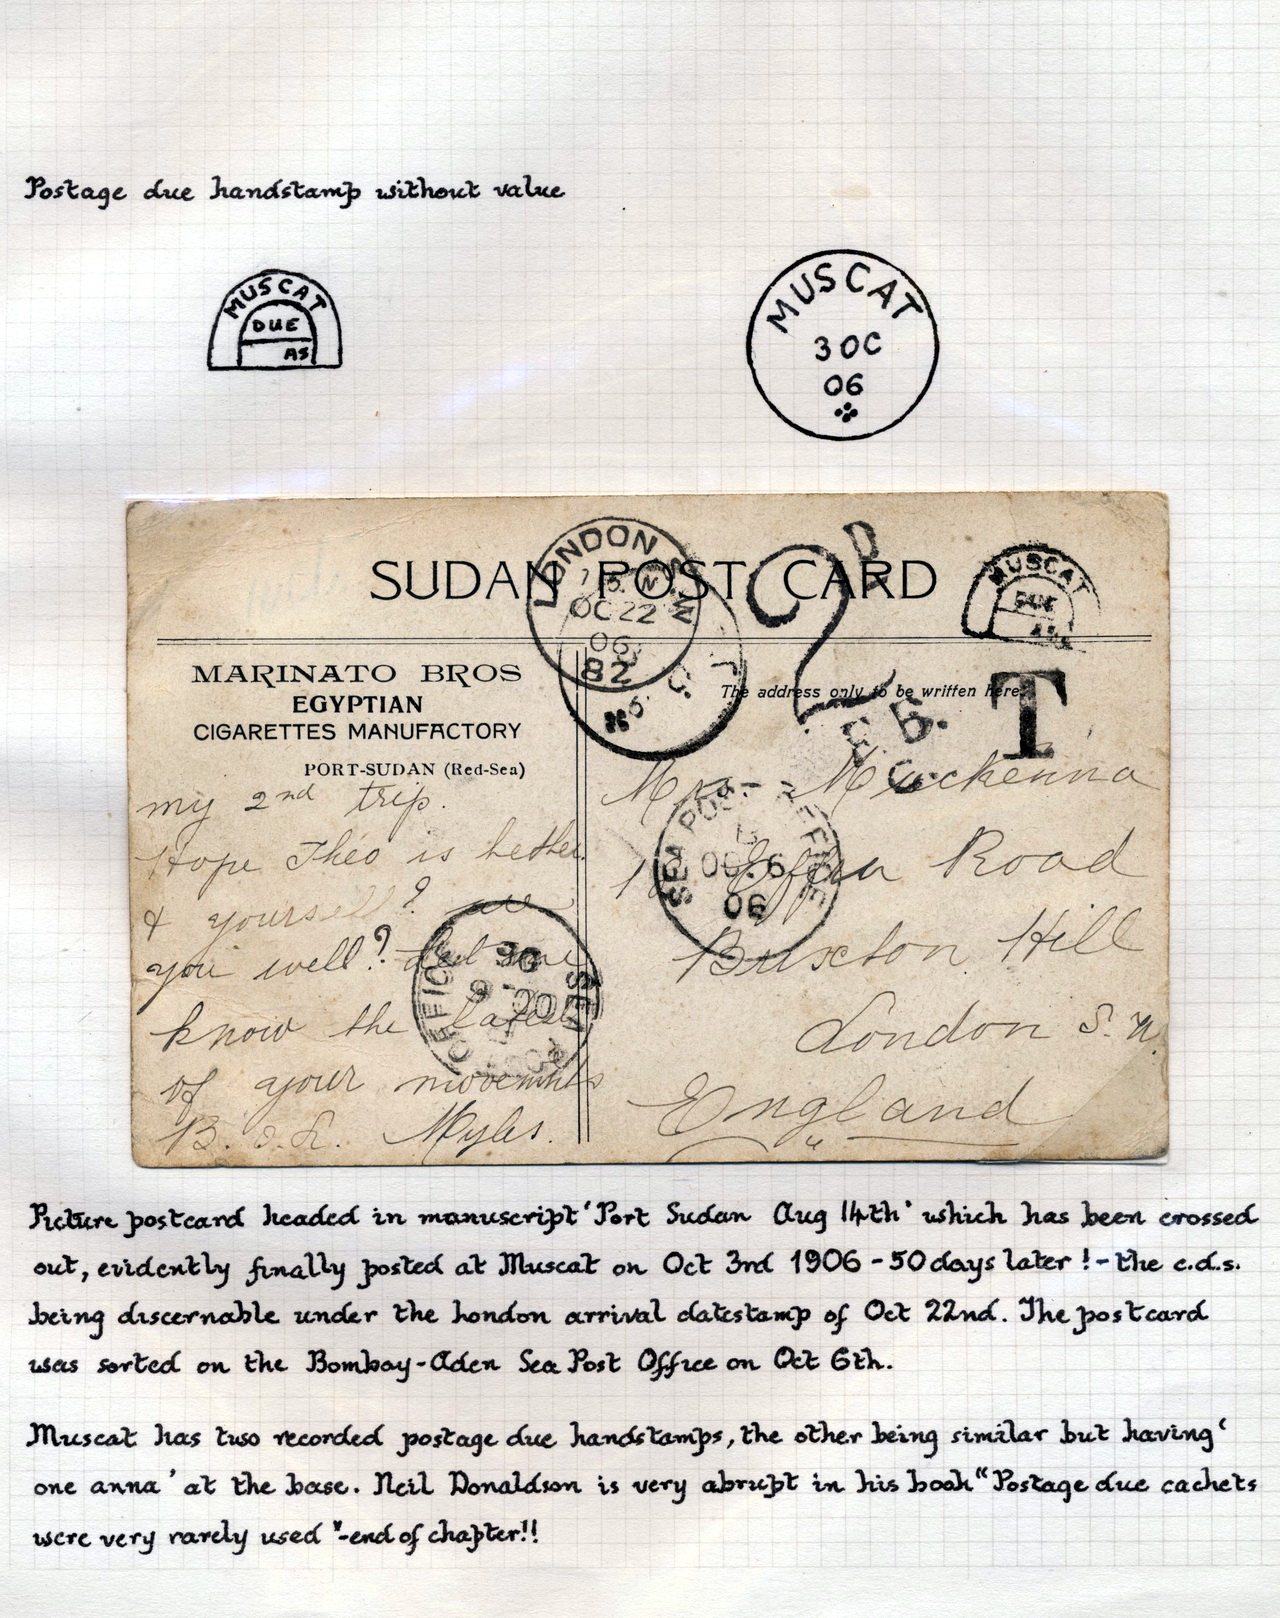 Postage due handstamp without value
MUSCAT
DUE
AS
MUSCAT
3 OC
06
SUDAN POST CARD
LONDON S.W
OC 22
06
82
D
2
MUSCAT
DUE
AS
MARINATO BROS
EGYPTIAN
CIGARETTES MANUFACTORY
PORT-SUDAN (Red-Sea)
The address only to be written here.
T
my 2nd trip.
Hope Théo is better
& yourself? are
you well? Let me
know the latest
of your movements
Myles.
Mackenna
Road
Buxton Hill
London S.W.
England
SEA POST OFFICE
OC 6
06
SEA POST OFFICE
OC 6
06
Picture postcard headed in manuscript 'Port Sudan Aug 14th' which has been crossed
out, evidently finally posted at Muscat on Oct 3rd 1906 - 50 days later ! - the c.d.s.
being discernable under the London arrival datestamp of Oct 22nd. The postcard
was sorted on the Bombay-Aden Sea Post Office on Oct 6th.
Muscat has two recorded postage due handstamps, the other being similar but having '
one anna ' at the base. Neil Donaldson is very abrupt in his book "Postage due cachets
were very rarely used" - end of chapter!!